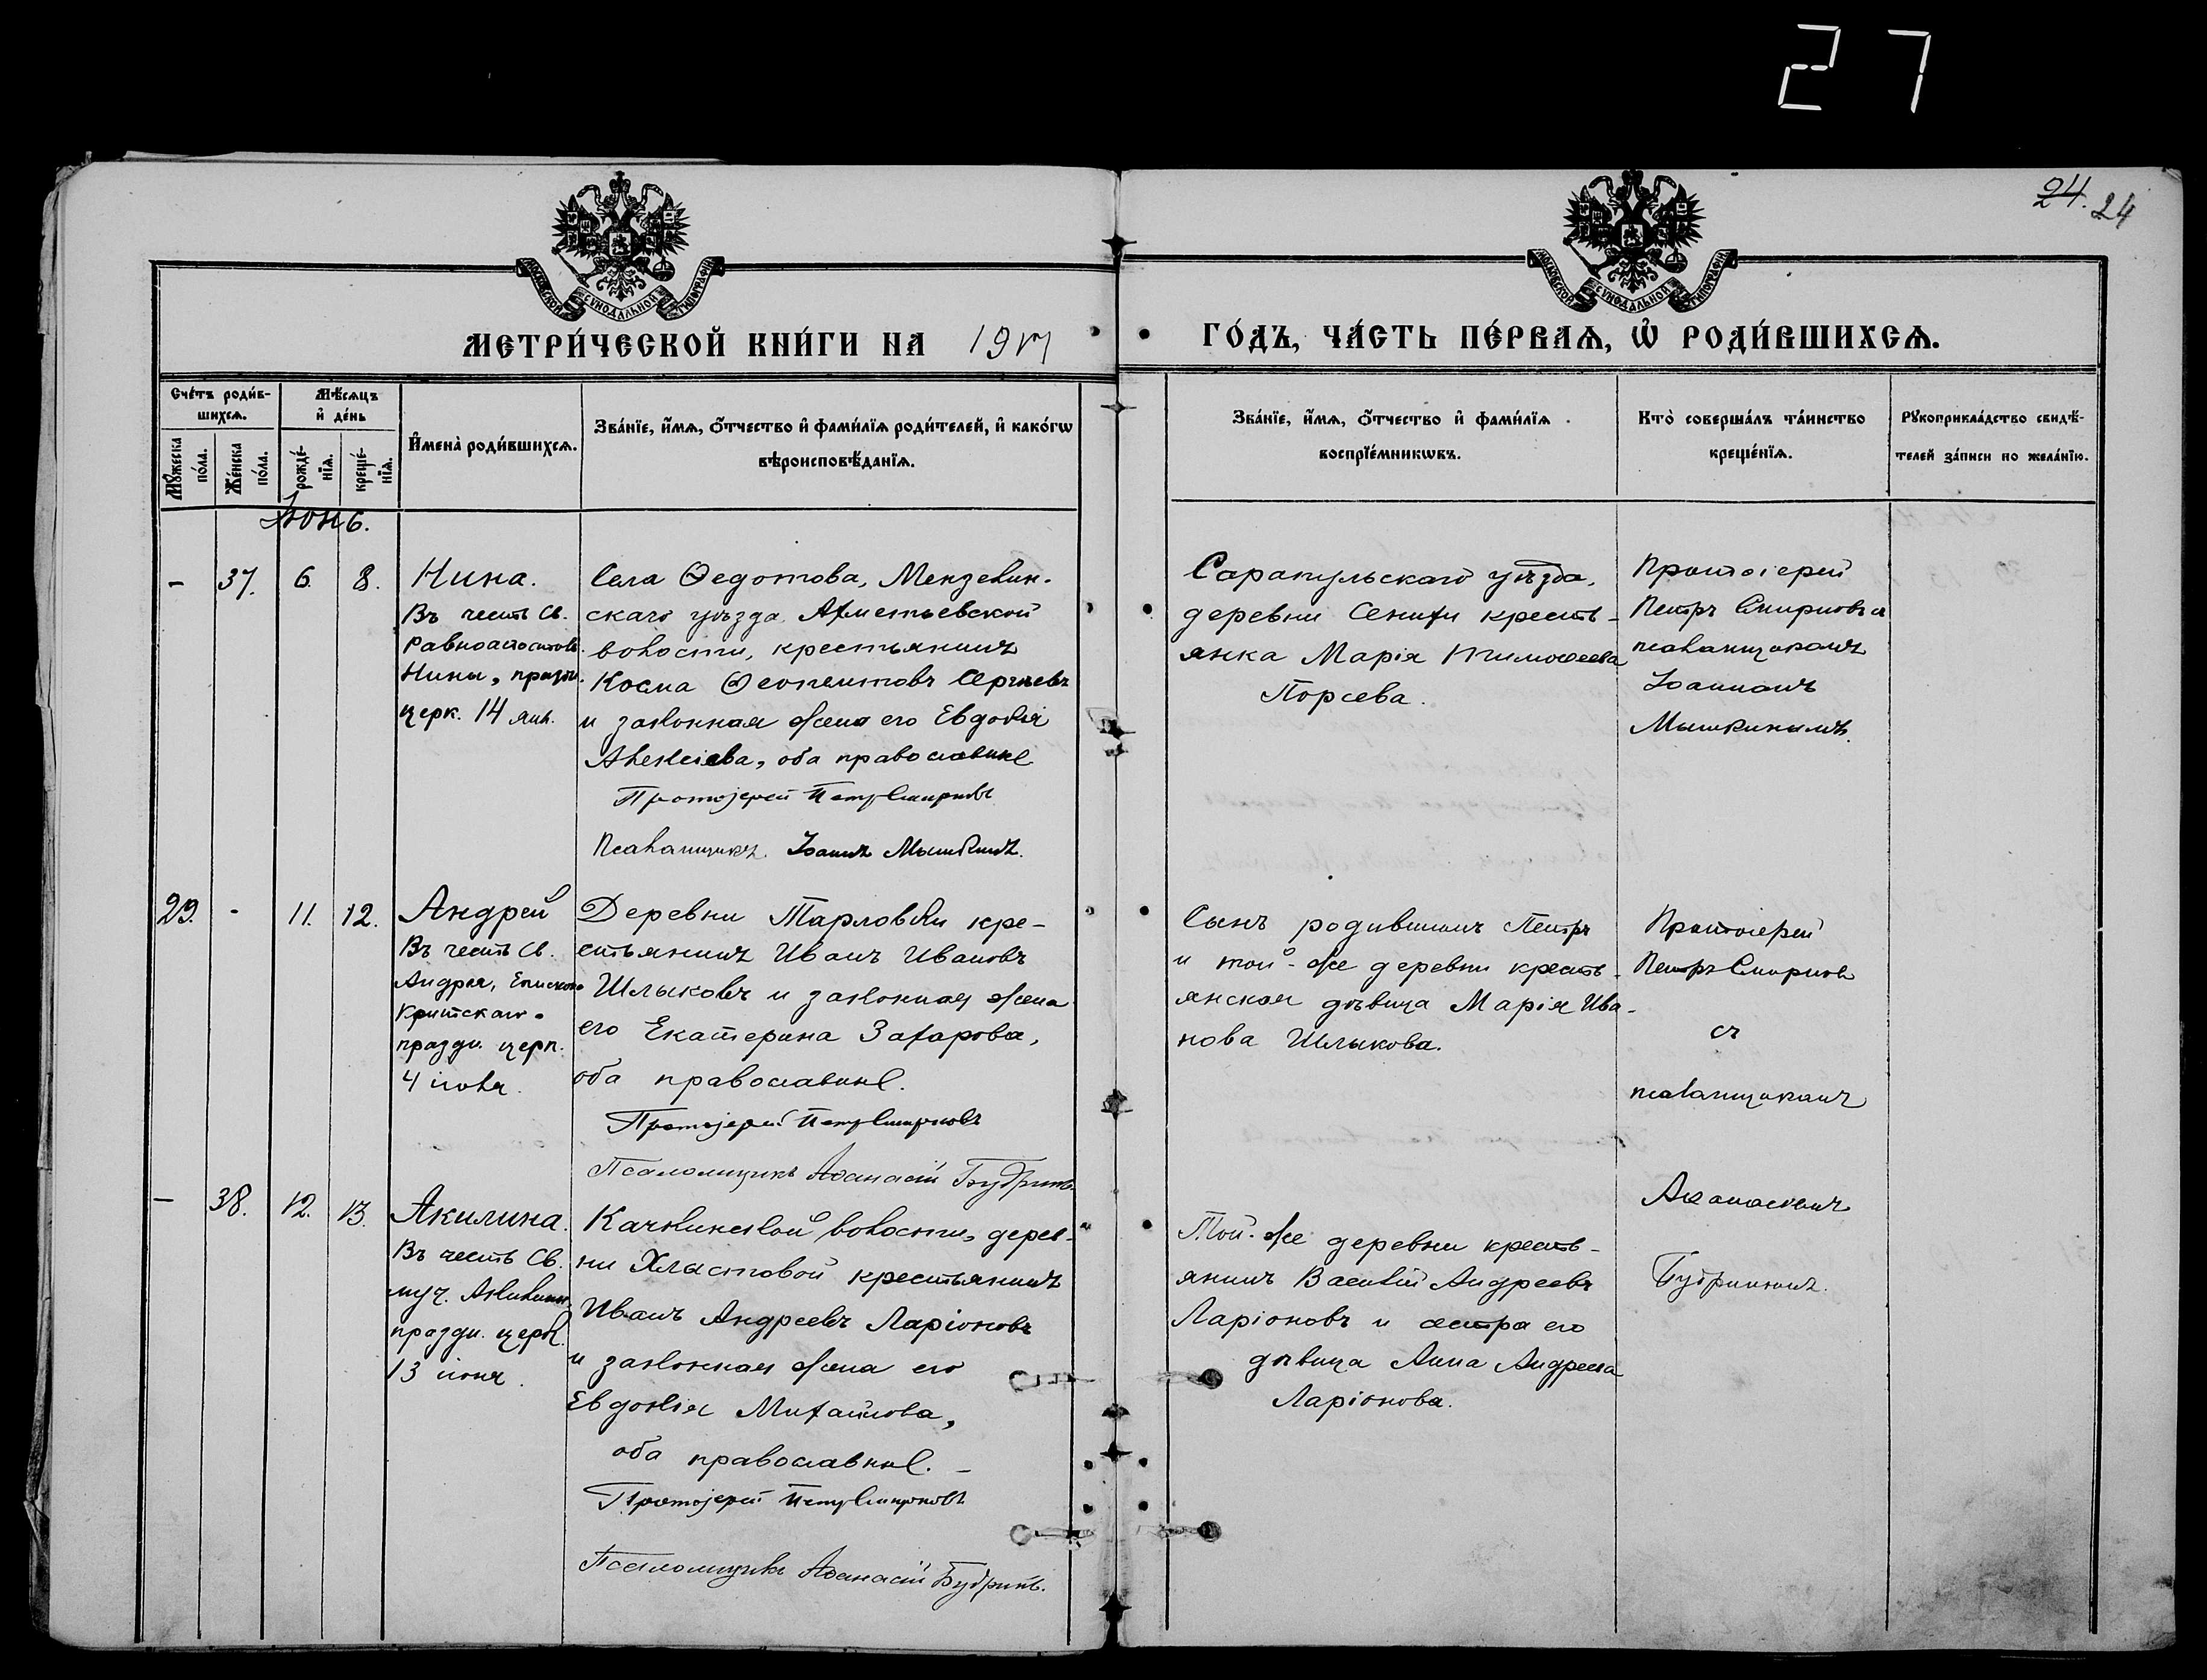 27
24. 24
МОСКОВСКОЙ СѴНОДАЛЬНОЙ ТИПОГРАФІИ
МОСКОВСКОЙ СѴНОДАЛЬНОЙ ТИПОГРАФІИ
МЕТРИ́ЧЕСКОЙ КНИ́ГИ НА 1917
ГО́ДЪ, ЧА́СТЬ ПЕ́РВАѦ, Ѡ҆ РОДИ́ВШИХСѦ.
Сче́тъ роди́в-
шихсѧ.
Мѣ́сѧцъ
и҆ де́нь
Мꙋ́жеска
по́ла.
Же́нска
по́ла.
рожде́-
нїѧ.
креще́-
нїѧ.
И҆мена̀ роди́вшихсѧ.
Зва́нїе, и҆́мѧ, ѻ҆́тчество и҆ фами́лїѧ роди́телей, и҆ како́гѡ
вѣроисповѣ́данїѧ.
Зва́нїе, и҆́мѧ, ѻ҆́тчество и҆ фами́лїѧ
воспрїе́мникѡвъ.
Кто̀ соверша́лъ та́инство
креще́нїѧ.
Рꙋкоприкла́дство свидѣ́-
телей за́писи по жела́нїю.
Іюнь.
- 37. 6. 8.
Нина.
Въ честь Св.
Равноапостольн.
Нины, праздн.
церк. 14 янв.
Села Ѳедотова, Мензелин-
скаго уѣзда, Ахметьевской
волости, крестьянинъ
Косма Ѳеопемптовъ Сергѣевъ
и законная жена его Евдокія
Алексіева, оба православные
Протоіерей Петръ Смирновъ
Псаломщикъ Іоаннъ Мышкинъ.
Сарапульскаго уѣзда,
деревни Сенихи кресть-
янка Марія Тимоѳеева
Порсева.
Протоіерей
Петръ Смирновъ съ
псаломщикомъ
Іоанномъ
Мышкинымъ.
29. - 11. 12.
Андрей
Въ честь Св.
Андрея, Епископа
Критскаго.
праздн. церк.
4 іюля.
Деревни Тарловки кре-
стьянинъ Иванъ Ивановъ
Шлыковъ и законная жена
его Екатерина Захарова,
оба православные.
Протоіерей Петръ Смирновъ
Псаломщикъ Аѳанасій Будринъ.
Сынъ родившихъ Петръ
и той-же деревни кресть-
янская дѣвица Марія Ива-
нова Шлыкова.
Протоіерей
Петръ Смирновъ
съ
псаломщикомъ
Аѳанасіемъ
Будринымъ.
- 38. 12. 13.
Акилина.
Въ честь Св.
муч. Акилины,
праздн. церк.
13 іюня.
Качкинской волости, дерев-
ни Хластовой крестьянинъ
Иванъ Андреевъ Ларіоновъ
и законная жена его
Евдокія Михайлова,
оба православные. -
Протоіерей Петръ Смирновъ
Псаломщикъ Аѳанасій Будринъ.
Той-же деревни кресть-
янинъ Василій Андреевъ
Ларіоновъ и сестра его
дѣвица Анна Андреева
Ларіонова.